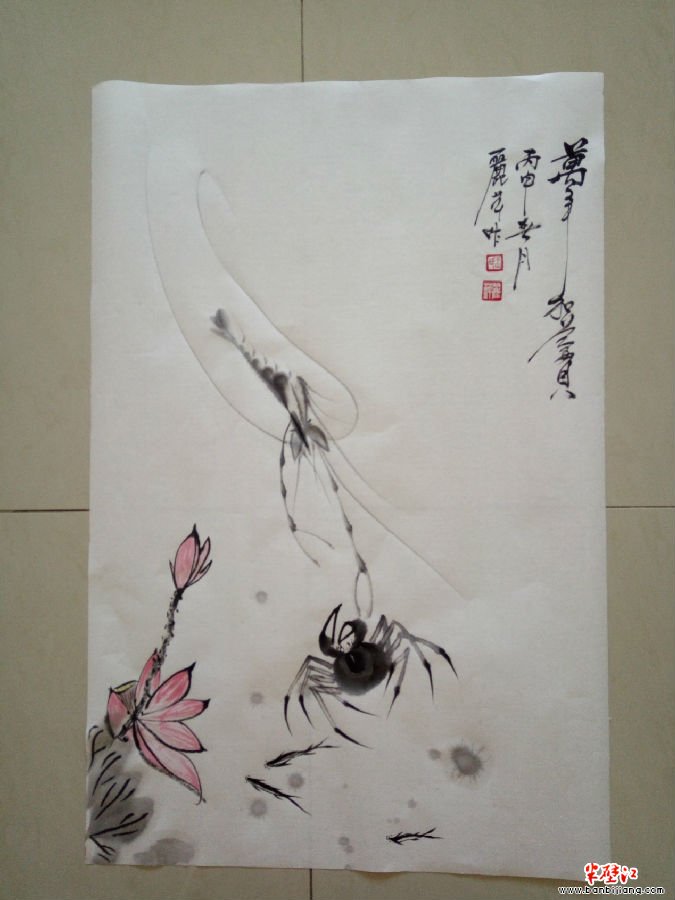 萬事和為貴
丙申春月
麗萍作
半壁江
www.banbijiang.com